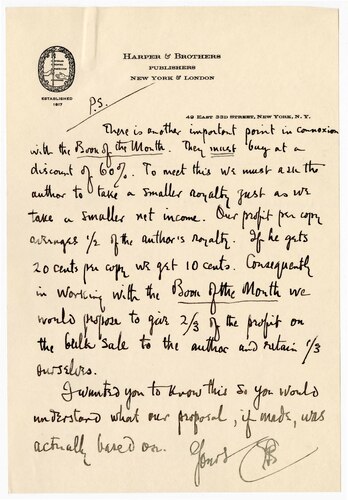 HARPER & BROTHERS
PUBLISHERS
NEW YORK & LONDON
ESTABLISHED
1817
P.S.
49 EAST 33D STREET, NEW YORK, N.Y.
There is another important point in connexion
with the Book of the Month. They must buy at a
discount of 60%. To meet this we must ask the
author to take a smaller royalty just as we
take a smaller net income. Our profit per copy
averages 1/2 of the author's royalty. If he gets
20 cents per copy we get 10 cents. Consequently
in working with the Book of the Month we
would propose to give 2/3 of the profit on
the bulk sale to the author and retain 1/3
ourselves.
I wanted you to know this so you would
understand what our proposal, if made, was
actually based on. Yours